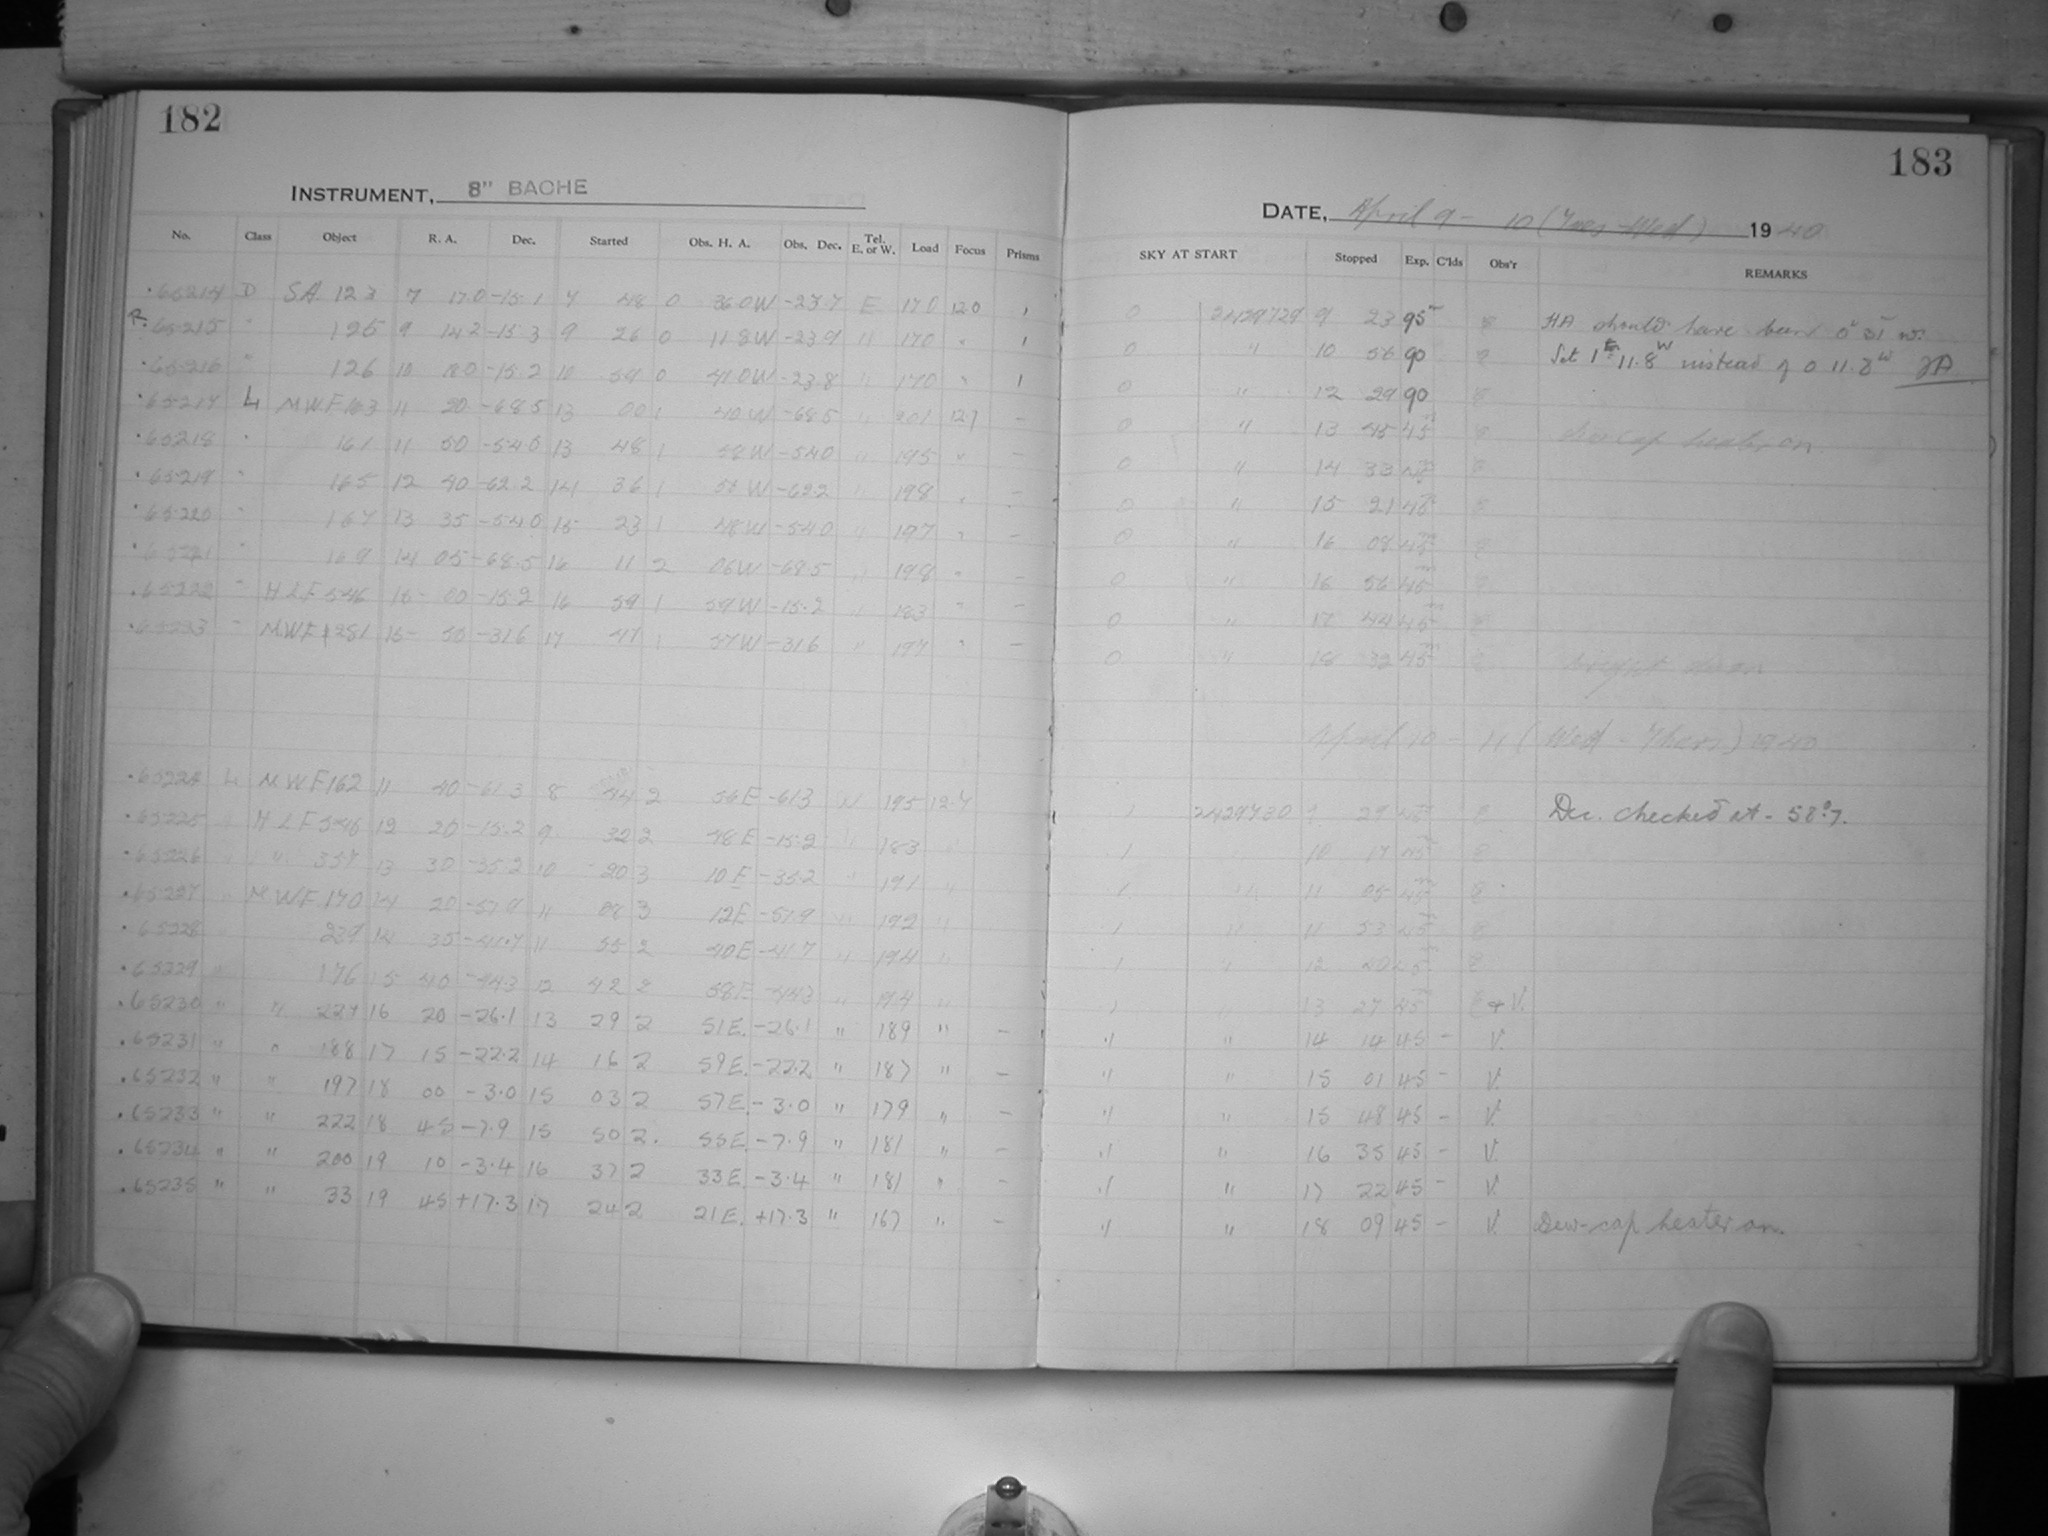 182
INSTRUMENT, 8" BACHE
No. Class Object R. A. Dec. Started Obs. H. A. Obs. Dec. Tel. E. or W. Load Focus Prisms
.65214 D SA 123 7 17.0 -15.1 7 48 0 36.0W -23.7 E 170 12.0 1
R .65215 " 125 9 14.2 -15.3 9 26 0 11.8W -23.9 " 170 " 1
.65216 " 126 10 18.0 -15.2 10 59 0 41.0W -23.8 " 170 " 1
.65217 L MWF 163 11 20 -68.5 13 00 1 40W -68.5 " 201 12.7 -
.65218 " 161 11 50 -54.0 13 48 1 58W -54.0 " 195 " -
.65219 " 165 12 40 -62.2 14 36 1 -62.2 " 198 " -
.65220 " 167 13 35 -54.0 15 23 1 48W -54.0 " 197 " -
.65221 " 169 14 05 -68.5 16 11 2 06W -68.5 " 198 " -
.65222 " HLF 546 15 00 -15.2 16 59 1 59W -15.2 " 183 " -
.65223 " MWF 281 15 50 -31.6 17 47 1 57W -31.6 " 197 " -
.65224 L MWF 162 11 40 -61.3 8 44 2 56E -61.3 W 195 12.7
.65225 " HLF 12 20 -15.2 9 32 2 48E -15.2 " 183 "
.65226 " " 357 13 30 -35.2 10 20 3 10E -35.2 " 191 "
.65227 " MWF 170 14 20 -57.9 11 08 3 12E -57.9 " 192 "
.65228 " 239 14 35 -41.7 11 55 2 40E -41.7 " 194 "
.65229 " 176 15 40 -44.3 12 42 2 58E -44.3 " 194 "
.65230 " " 227 16 20 -26.1 13 29 2 51E. -26.1 " 189 " -
.65231 " " 188 17 15 -22.2 14 16 2 59E. -22.2 " 187 " -
.65232 " " 197 18 00 -3.0 15 03 2 57E. -3.0 " 179 " -
.65233 " " 222 18 45 -7.9 15 50 2. 55E. -7.9 " 181 " -
.65234 " " 200 19 10 -3.4 16 37 2 33E. -3.4 " 181 " -
.65235 " " 33 19 45 +17.3 17 24 2 21E. +17.3 " 167 " -
183
DATE, April 9 - 10 (Tues - Wed) 1940
SKY AT START Stopped Exp. C'lds Obs'r REMARKS
0 2429729 9 23 95m HA should have been 0h 31 w.
0 " 10 56 90 Set 1h 11.8w instead of 0 11.8w JA
0 " 12 29 90
0 " 13 45 45 dew cap heater on
0 " 14 33 45
0 " 15 21 45
0 " 16 08 45
0 " 16 56 45
0 " 17 44 45
0 " 18 32 45
April 10 - 11 (Wed - Thurs) 1940
1 2429730 9 29 45 Dec. checked at - 58°.7.
1 10 17 45
1 " 11 05 45
1 " 11 53 45
1 " 12 40 45
1 " 13 27 45 & V.
" " 14 14 45 - V.
" " 15 01 45 - V.
" " 15 48 45 - V.
" " 16 35 45 - V.
" " 17 22 45 - V.
" " 18 09 45 - V. Dew-cap heater on.